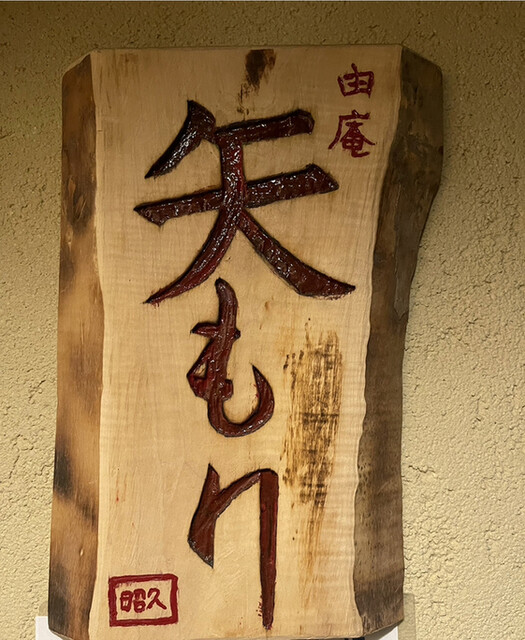 由庵
矢もり
昭久